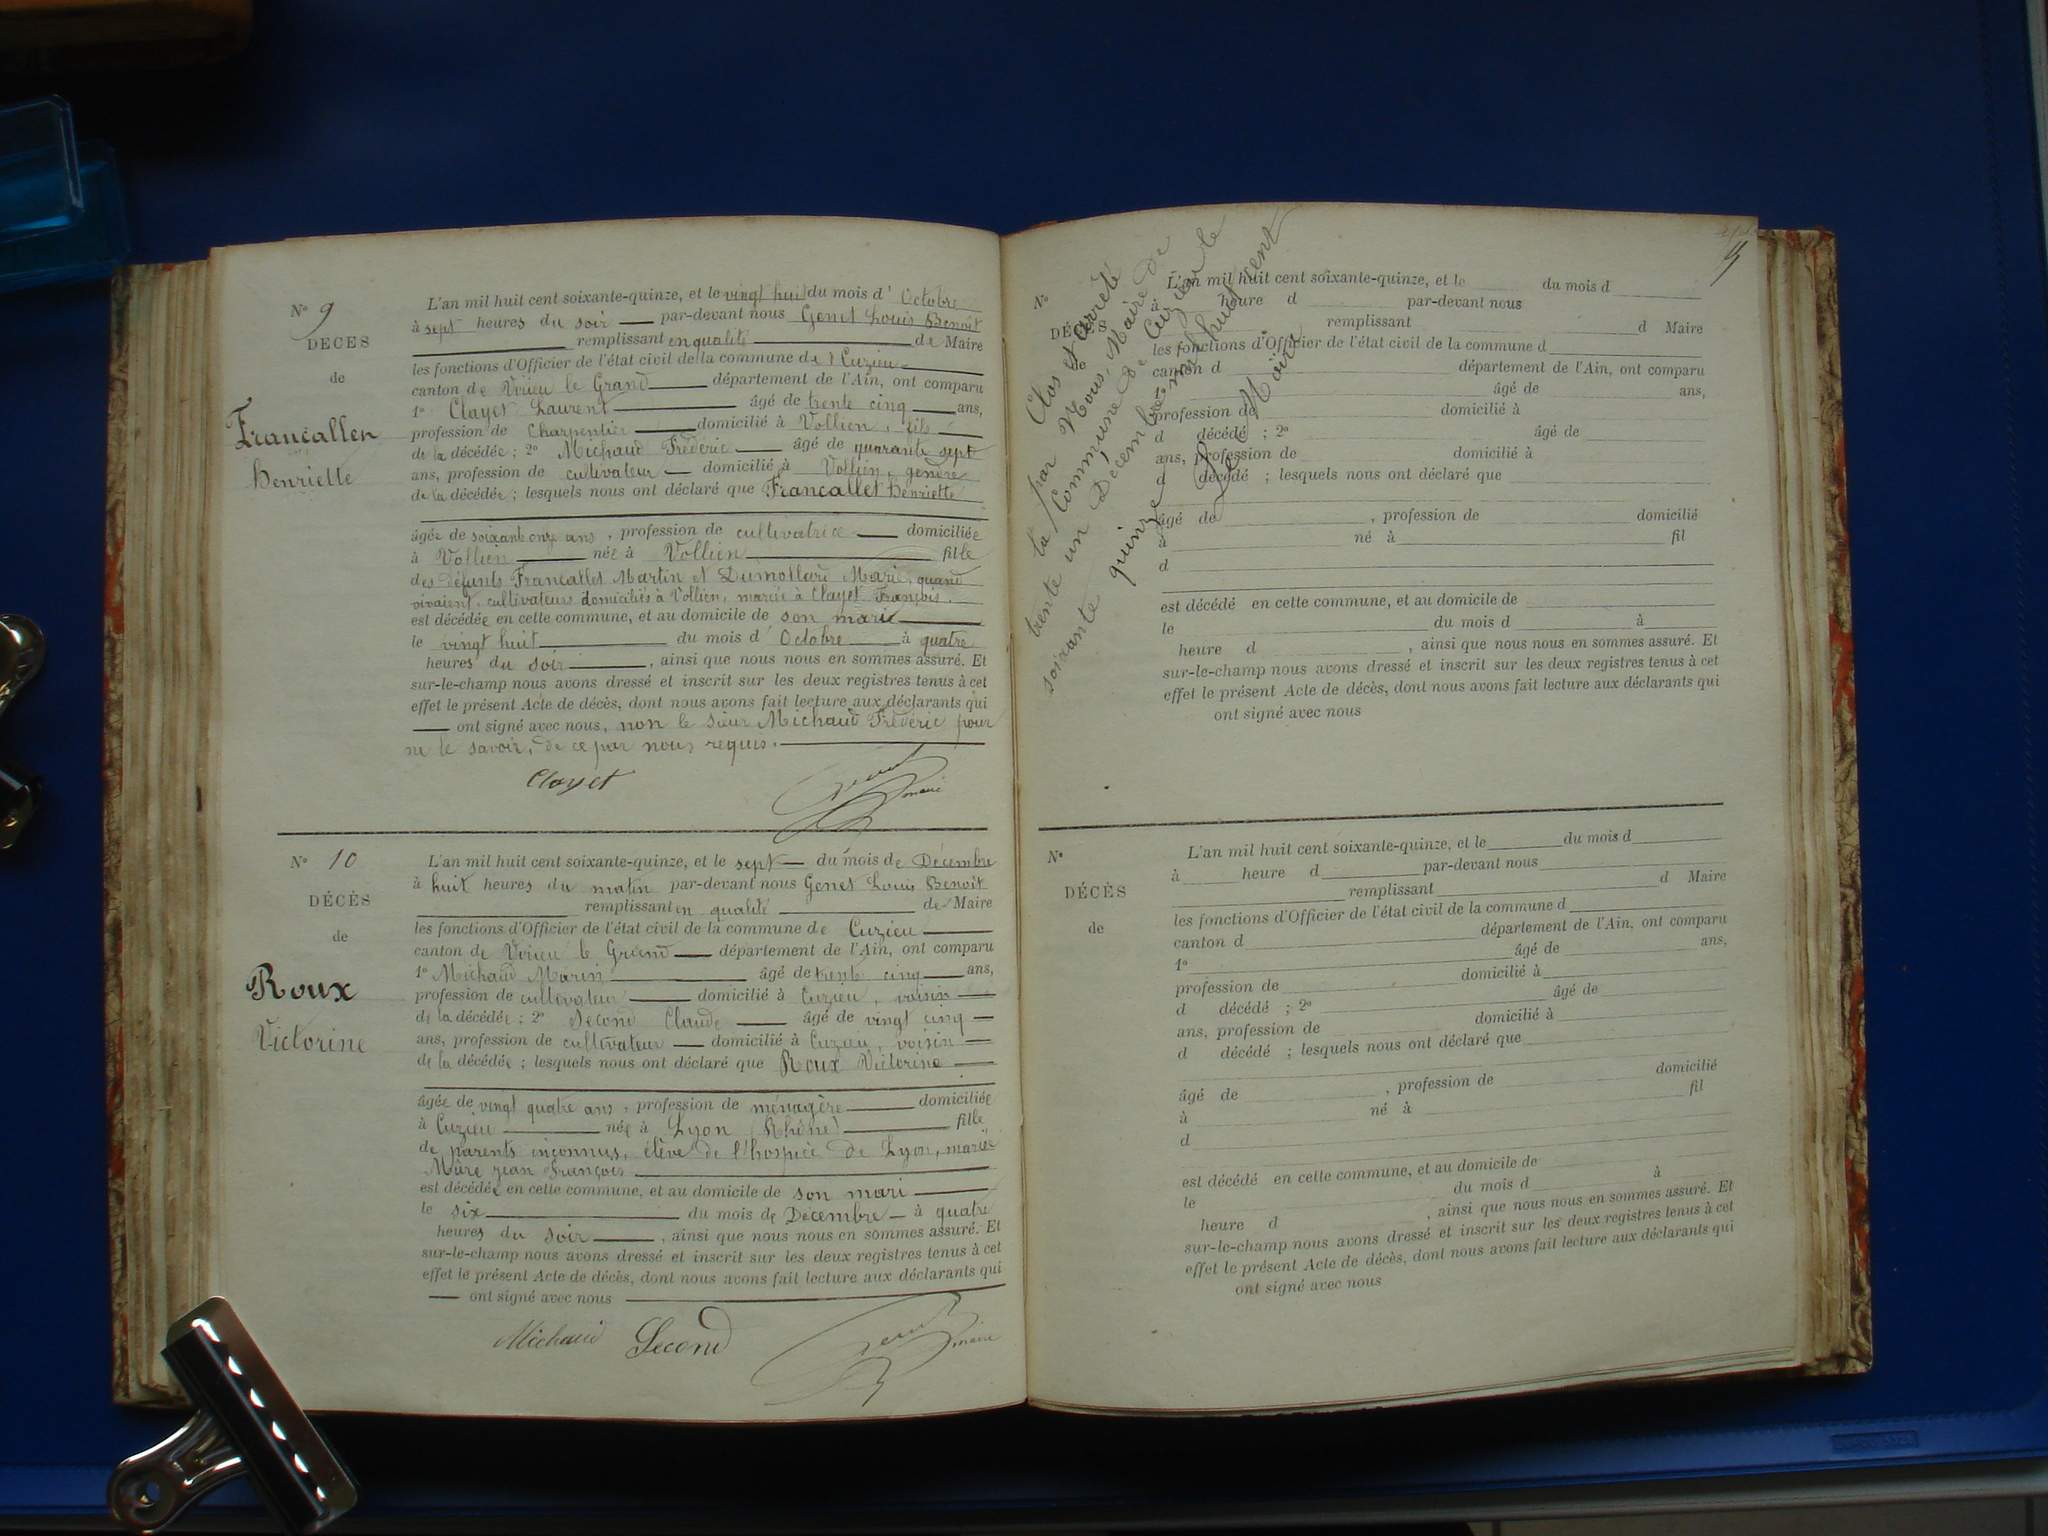 N° 9
DÉCÈS
de
Francallet
henriette
L'an mil huit cent soixante-quinze, et le vingt huit du mois d' Octobre
à sept heures du soir par-devant nous Genet Louis Benoit
remplissant en qualité de Maire
les fonctions d'Officier de l'état civil de la commune de Cuzieu
canton de Virieu le Grand département de l'Ain, ont comparu
1° Clayet Laurent âgé de trente cinq ans,
profession de Charpentier domicilié à Vollien, fils
de la décédée ; 2° Michaud Frédéric âgé de quarante sept
ans, profession de cultivateur domicilié à Vollien, gendre
de la décédée ; lesquels nous ont déclaré que Francallet henriette
âgée de soixante onze ans, profession de cultivatrice domiciliée
à Vollien née à Vollien fille
des défunts Francallet Martin et Dumollard Marie, quand
vivaient, cultivateurs domiciliés à Vollien, mariée à Clayet François.
est décédée en cette commune, et au domicile de son mari
le vingt huit du mois d' Octobre à quatre
heures du soir, ainsi que nous nous en sommes assuré. Et
sur-le-champ nous avons dressé et inscrit sur les deux registres tenus à cet
effet le présent Acte de décès, dont nous avons fait lecture aux déclarants qui
ont signé avec nous, non le sieur Michaud Frédéric pour
ne le savoir, de ce par nous requis.
Clayet
maire
N° 10
DÉCÈS
de
Roux
Victorine
L'an mil huit cent soixante-quinze, et le sept du mois de Décembre
à huit heures du matin par-devant nous Genet Louis Benoit
remplissant en qualité de Maire
les fonctions d'Officier de l'état civil de la commune de Cuzieu
canton de Virieu le Grand département de l'Ain, ont comparu
1° Michaud Marin âgé de trente cinq ans,
profession de cultivateur domicilié à Cuzieu, voisin
de la décédée ; 2° Second Claude âgé de vingt cinq
ans, profession de cultivateur domicilié à Cuzieu, voisin
de la décédée ; lesquels nous ont déclaré que Roux Victorine
âgée de vingt quatre ans, profession de ménagère domiciliée
à Cuzieu née à Lyon (Rhône) fille
de parents inconnus, élève de l'hospice de Lyon, mariée
Mure jean François
est décédée en cette commune, et au domicile de son mari
le six du mois de Décembre à quatre
heures du soir, ainsi que nous nous en sommes assuré. Et
sur-le-champ nous avons dressé et inscrit sur les deux registres tenus à cet
effet le présent Acte de décès, dont nous avons fait lecture aux déclarants qui
ont signé avec nous
Michaud Second
maire
5
Clos et arrêté
par Nous, Maire de
la Commune de Cuzieu le
trente un Décembre mil huit cent
soixante quinze
Le Maire
N°
DÉCÈS
de
L'an mil huit cent soixante-quinze, et le du mois d
à heure d par-devant nous
remplissant d Maire
les fonctions d'Officier de l'état civil de la commune d
canton d département de l'Ain, ont comparu
âgé de ans,
profession de domicilié à
d décédé ; 2° âgé de
ans, profession de domicilié à
d décédé ; lesquels nous ont déclaré que
âgé de , profession de domicilié
à né à fil
d
est décédé en cette commune, et au domicile de
le du mois d à
heure d , ainsi que nous nous en sommes assuré. Et
sur-le-champ nous avons dressé et inscrit sur les deux registres tenus à cet
effet le présent Acte de décès, dont nous avons fait lecture aux déclarants qui
ont signé avec nous
N°
DÉCÈS
de
L'an mil huit cent soixante-quinze, et le du mois d
à heure d par-devant nous
remplissant d Maire
les fonctions d'Officier de l'état civil de la commune d
canton d département de l'Ain, ont comparu
1° âgé de ans,
profession de domicilié à
d décédé ; 2° âgé de
ans, profession de domicilié à
d décédé ; lesquels nous ont déclaré que
âgé de , profession de domicilié
à né à fil
d
est décédé en cette commune, et au domicile de
le du mois d à
heure d , ainsi que nous nous en sommes assuré. Et
sur-le-champ nous avons dressé et inscrit sur les deux registres tenus à cet
effet le présent Acte de décès, dont nous avons fait lecture aux déclarants qui
ont signé avec nous